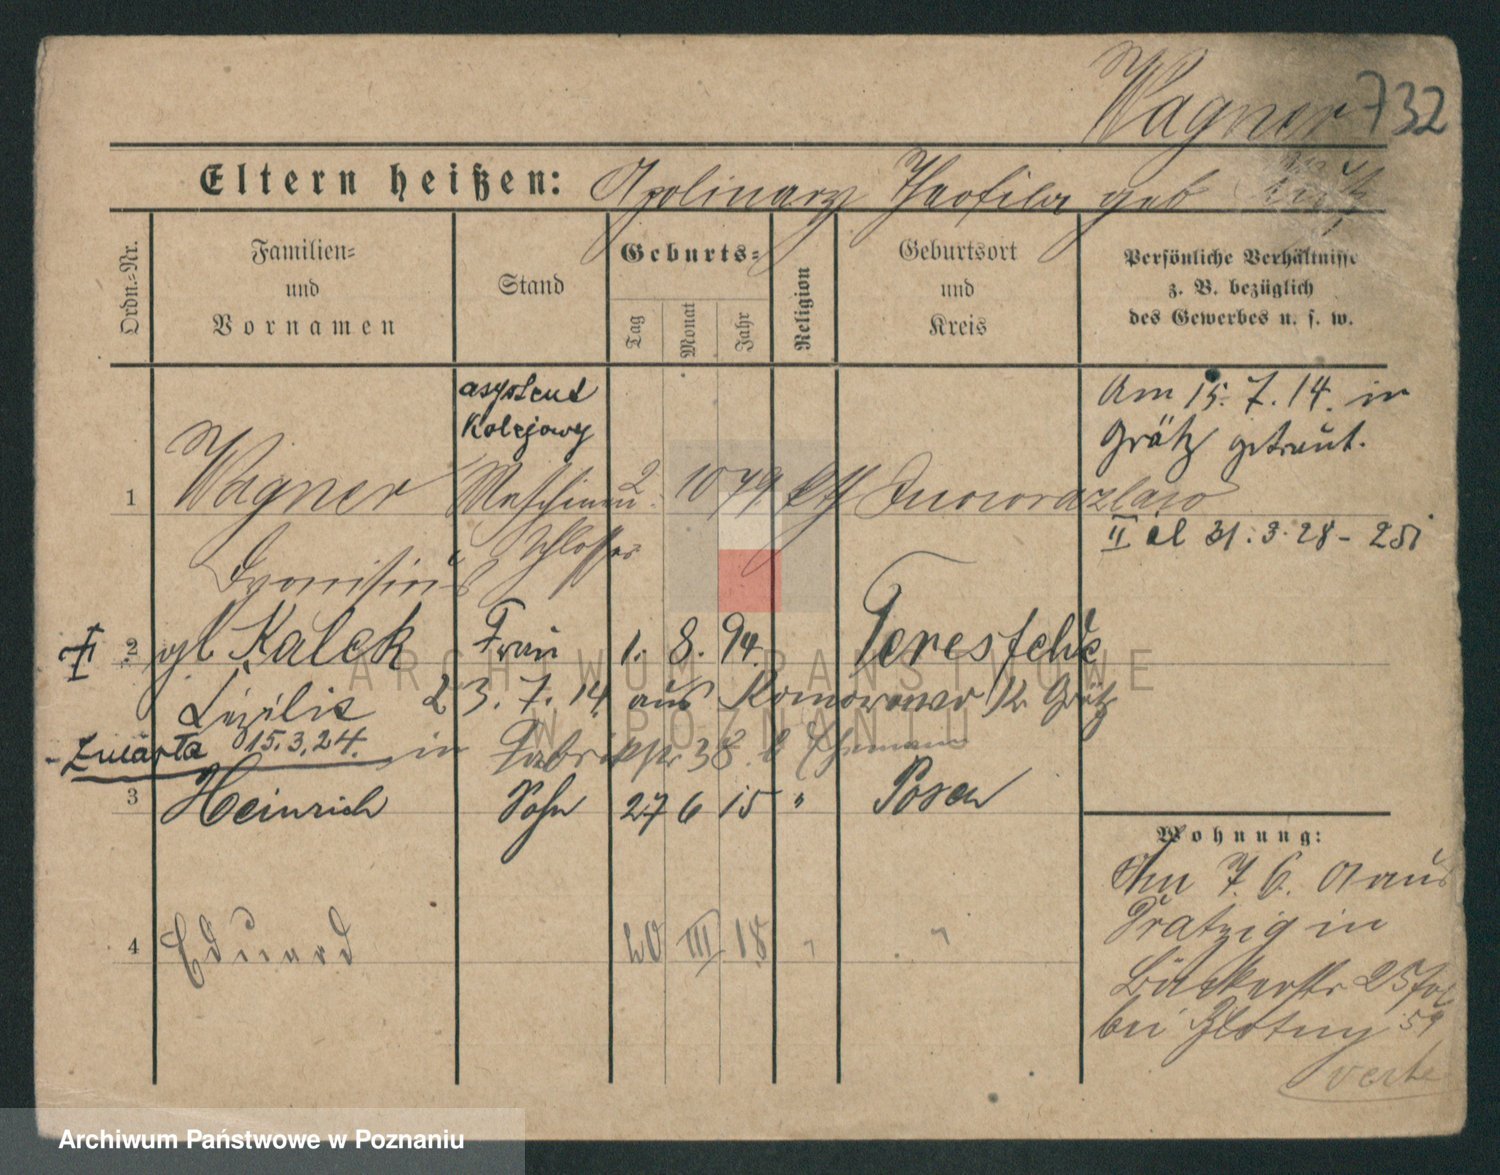 Wagner 732
Eltern heißen: Apolinary Theofila geb
Ordn.-Nr.
Familien- und Vornamen
Stand
Geburts-
Tag
Monat
Jahr
Religion
Geburtsort und Kreis
Persönliche Verhältnisse z. B. bezüglich des Gewerbes u. s. w.
asystent
Kolejowy
Am 15. 7. 14. in
Grätz getraut.
1 Wagner Maschinen 2 10 79 kth Inowrazlaw
Schlosser
II al 31.3.28 - 25i
Dyonisius
2 gb Kalek Frau 1. 8. 94. Teresfelde
Cezilie 23. 7. 14. aus Komorowo Kr Grätz
- Zmarła 15.3.24. in Fabrikstr 38 b
3 Heinrich Sohn 27 6 15 " Posen
Wohnung:
Am 7. 6. 01 aus
Pratzig in
Bäckerstr 25
bei Zlotny 59
4 Eduard 20 III 18 " "
verte
ARCHIWUM PAŃSTWOWE
W POZNANIU
Archiwum Państwowe w Poznaniu